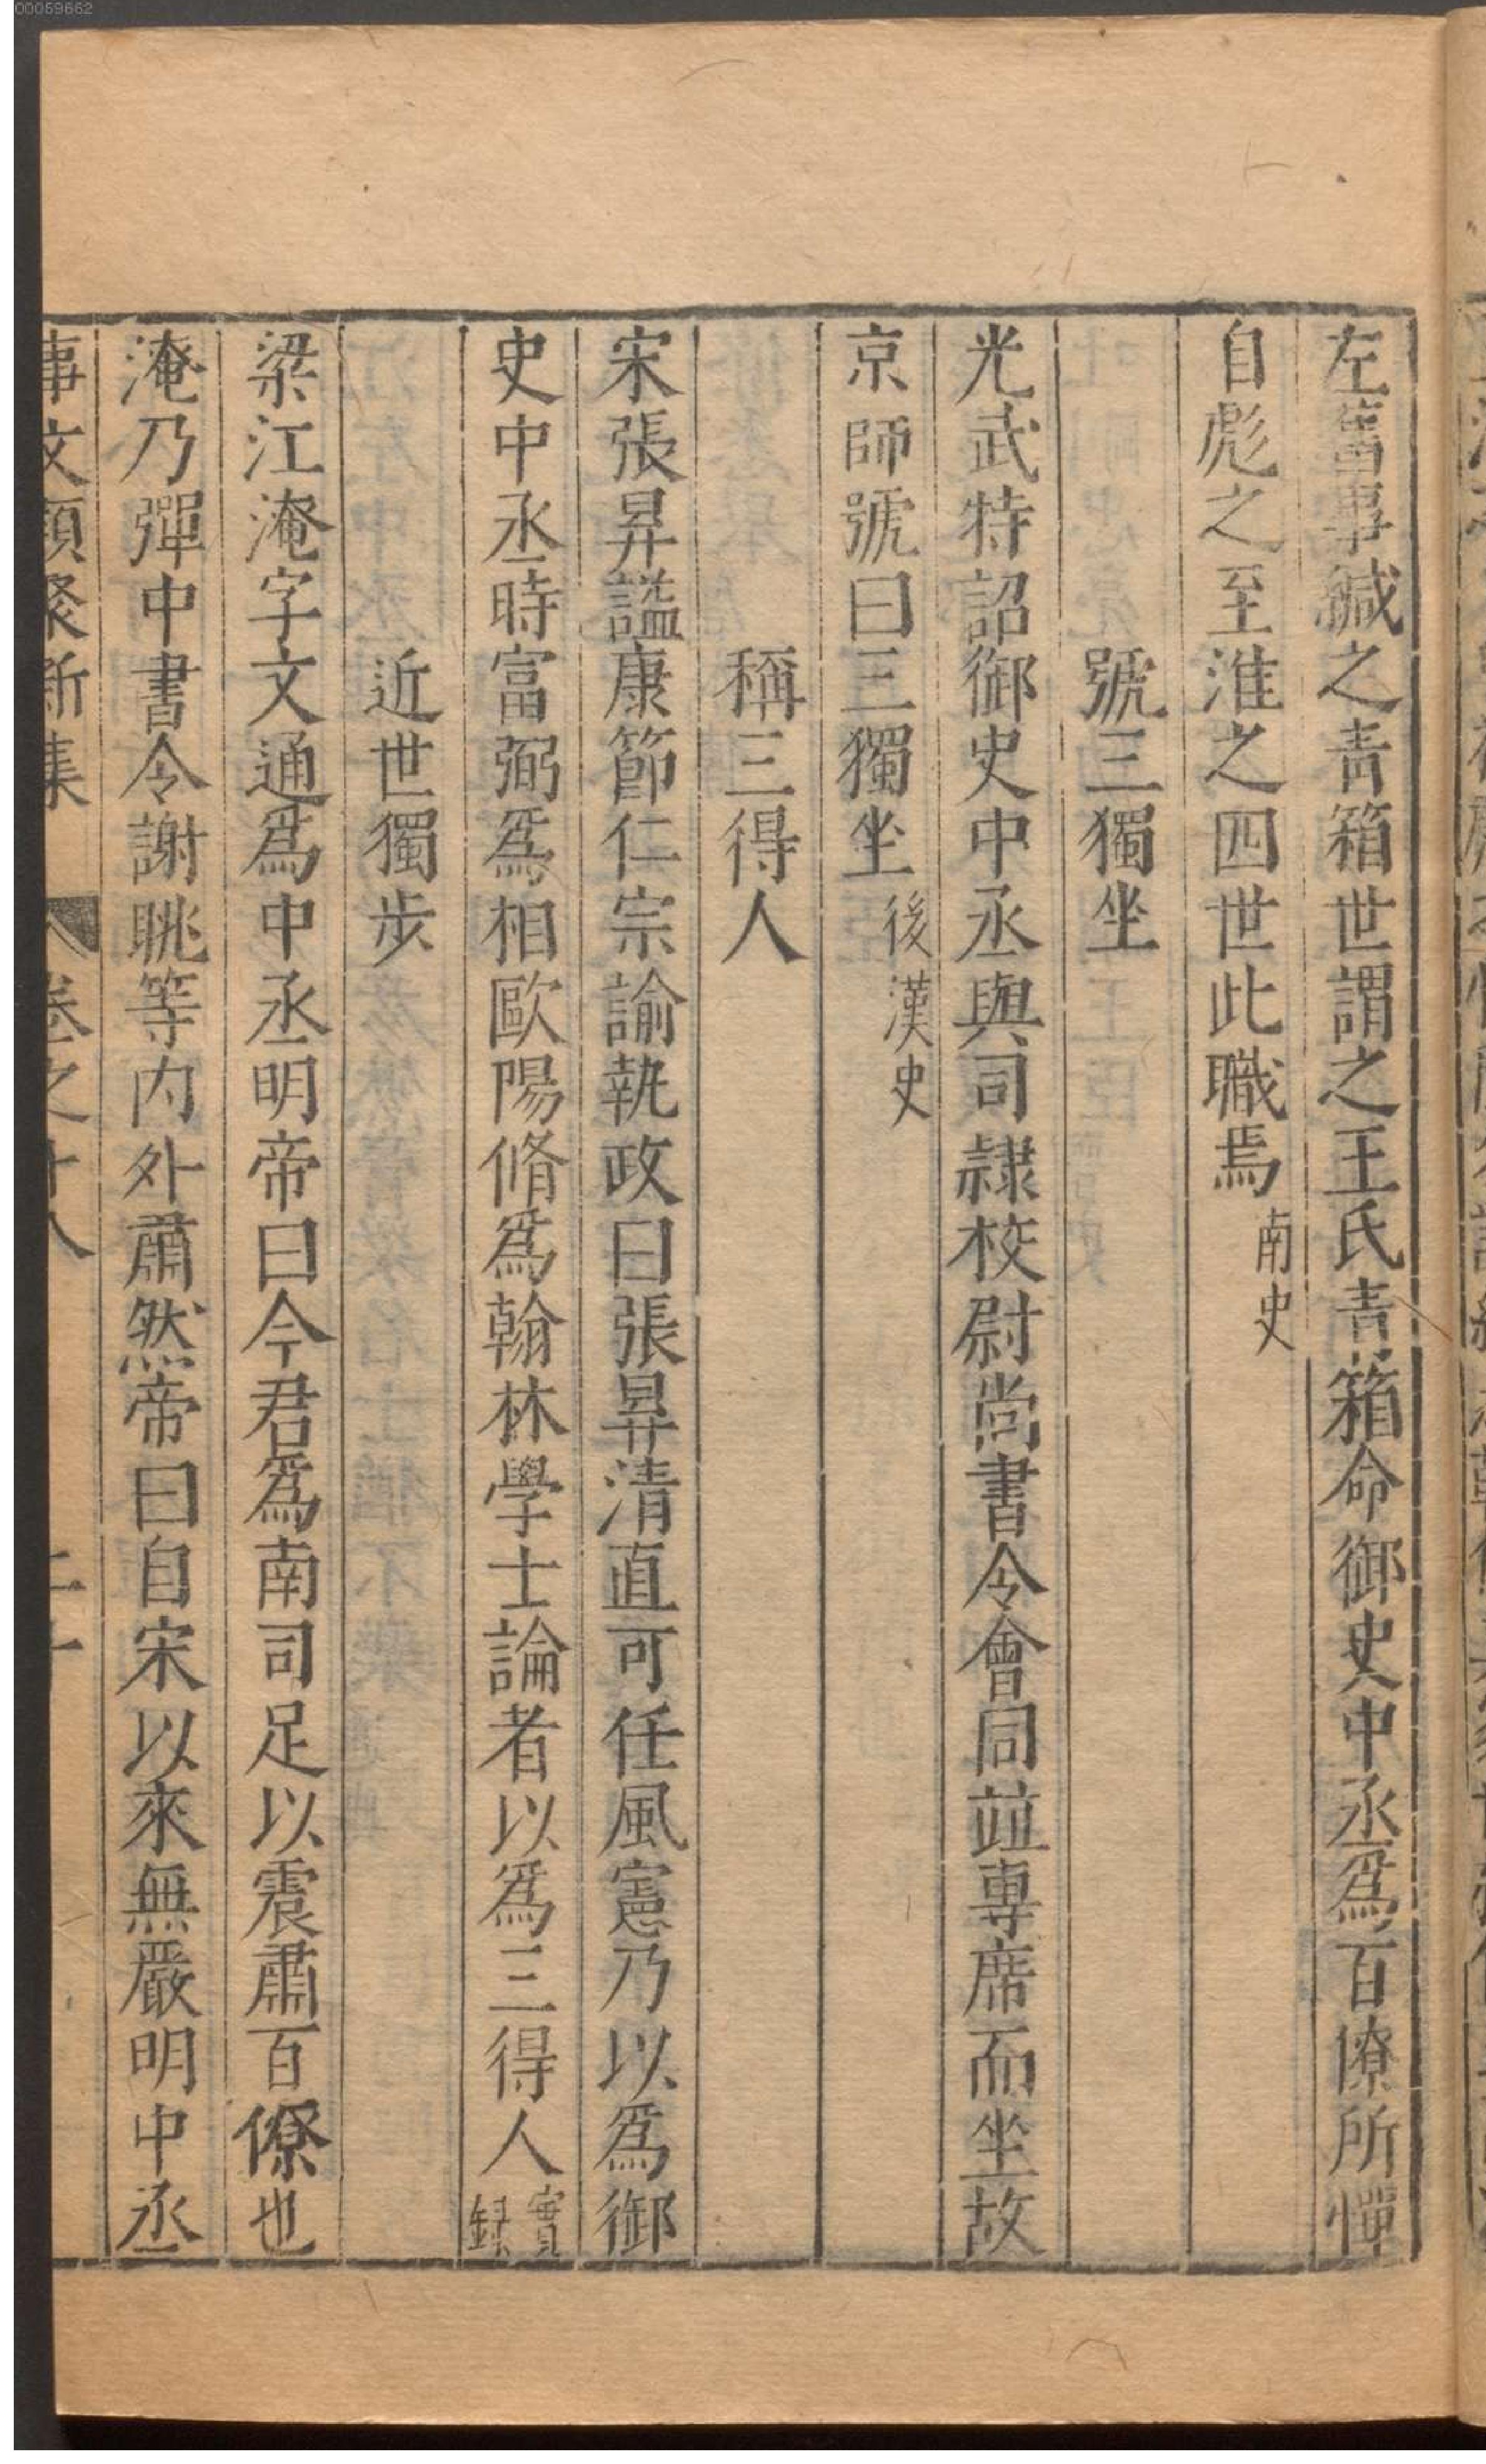 00059662
左舊事緘之靑箱世謂之王氏靑箱命御史中丞爲百僚所憚
自彪之至淮之四世此職焉 南史
號三獨坐
光武特詔御史中丞與司隷校尉尚書令會同竝專席而坐故
京師號曰三獨坐 後漢史
稱三得人
宋張昇謚康節仁宗諭執政曰張昇清直可任風憲乃以爲御
史中丞時富弼爲相歐陽脩爲翰林學士論者以爲三得人 實錄
近世獨步
梁江淹字文通爲中丞明帝曰今君爲南司足以震肅百僚也
淹乃彈中書令謝眺等内外肅然帝曰自宋以來無嚴明中丞
事文類聚新集 卷之十八 二十